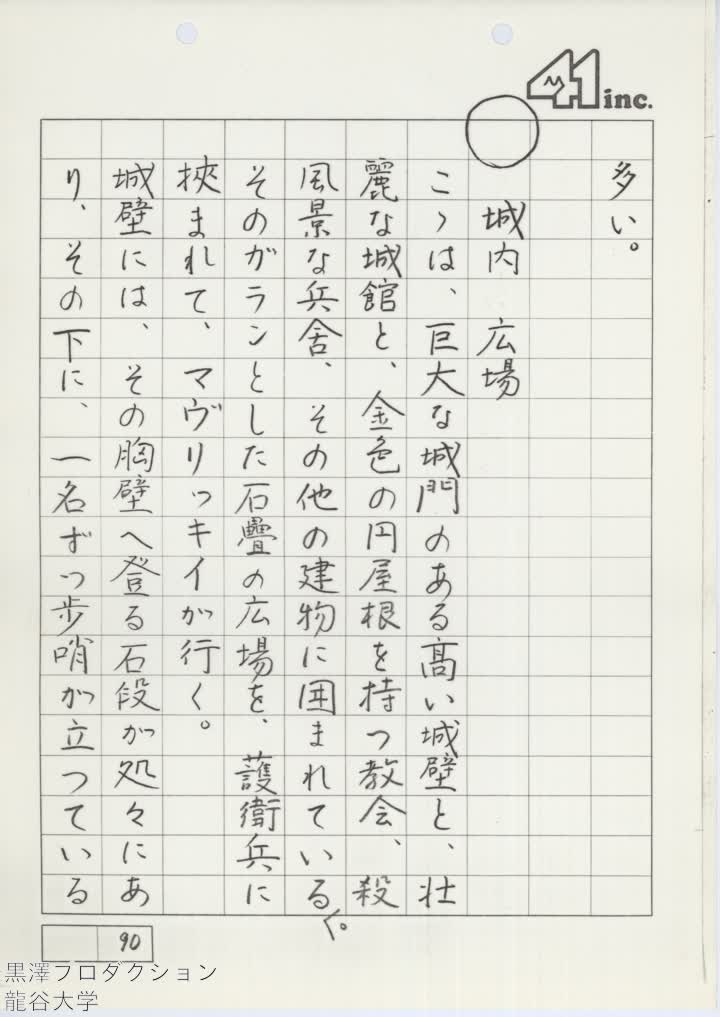 41 inc.
多い。
○
城内 広場
こゝは、巨大な城門のある高い城壁と、壮
麗な城館と、金色の円屋根を持つ教会、殺
風景な兵舎、その他の建物に囲まれている。
そのガランとした石疊の広場を、護衛兵に
挾まれて、マヴリッキイが行く。
城壁には、その胸壁へ登る石段が処々にあ
り、その下に、一名ずつ歩哨が立つている
90
黒澤プロダクション
龍谷大学